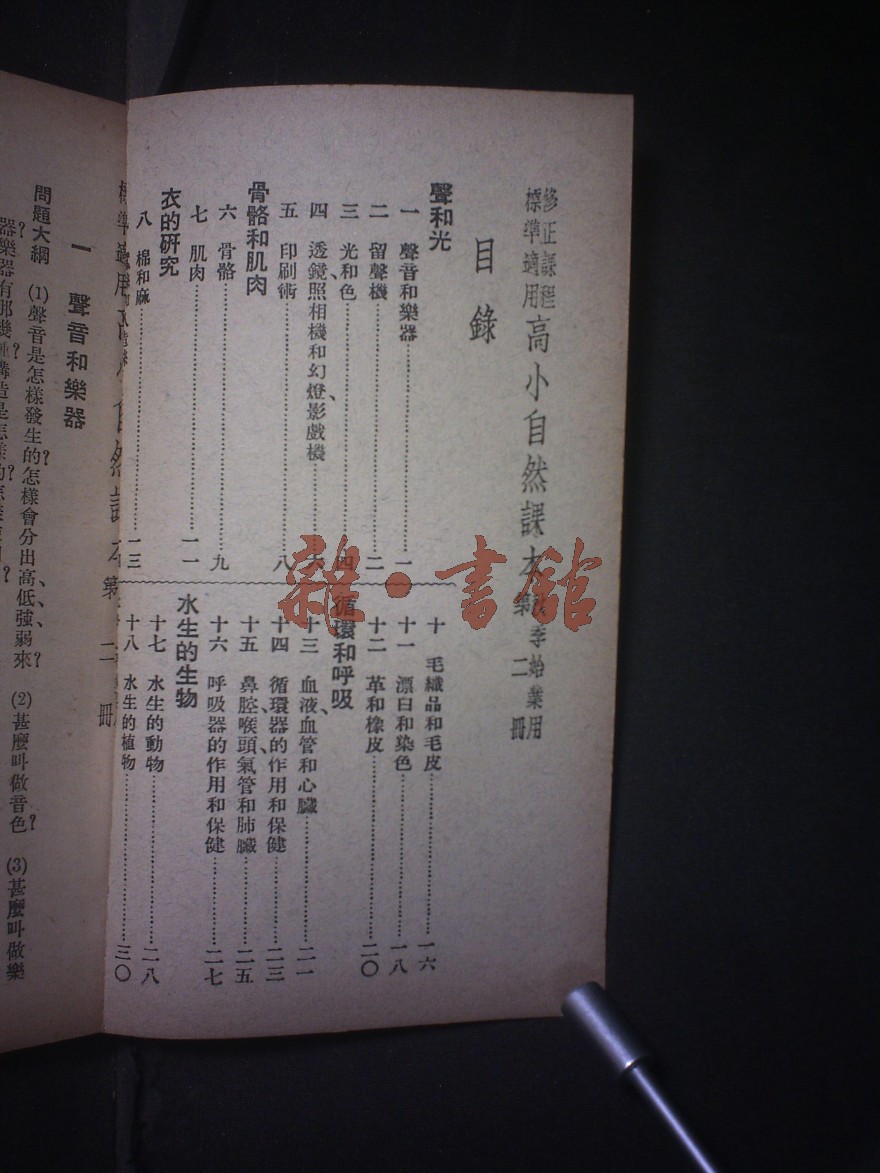 修正課程
標準適用
高小自然課本
秋季始業用
第二冊
目錄
聲和光
一 聲音和樂器……一
二 留聲機……二
三 光和色……四
四 透鏡、照相機和幻燈、影戲機……六
五 印刷術……八
骨骼和肌肉
六 骨骼……九
七 肌肉……一一
衣的研究
八 棉和麻……一三
十 毛織品和毛皮……一六
十一 漂白和染色……一八
十二 革和橡皮……二〇
循環和呼吸
十三 血液、血管和心臟……二一
十四 循環器的作用和保健……二三
十五 鼻腔、喉頭、氣管和肺臟……二五
十六 呼吸器的作用和保健……二七
水生的生物
十七 水生的動物……二八
十八 水生的植物……三〇
標準適用
自然課本第二冊
一 聲音和樂器
問題大綱 (1)聲音是怎樣發生的?怎樣會分出高、低、強、弱來? (2)甚麼叫做音色? (3)甚麼叫做樂
器?樂器有那幾種?構造是怎樣的?
雜·書館